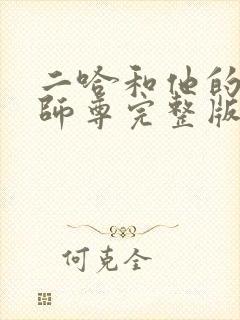 二哈和他的
師尊完整版
何克全